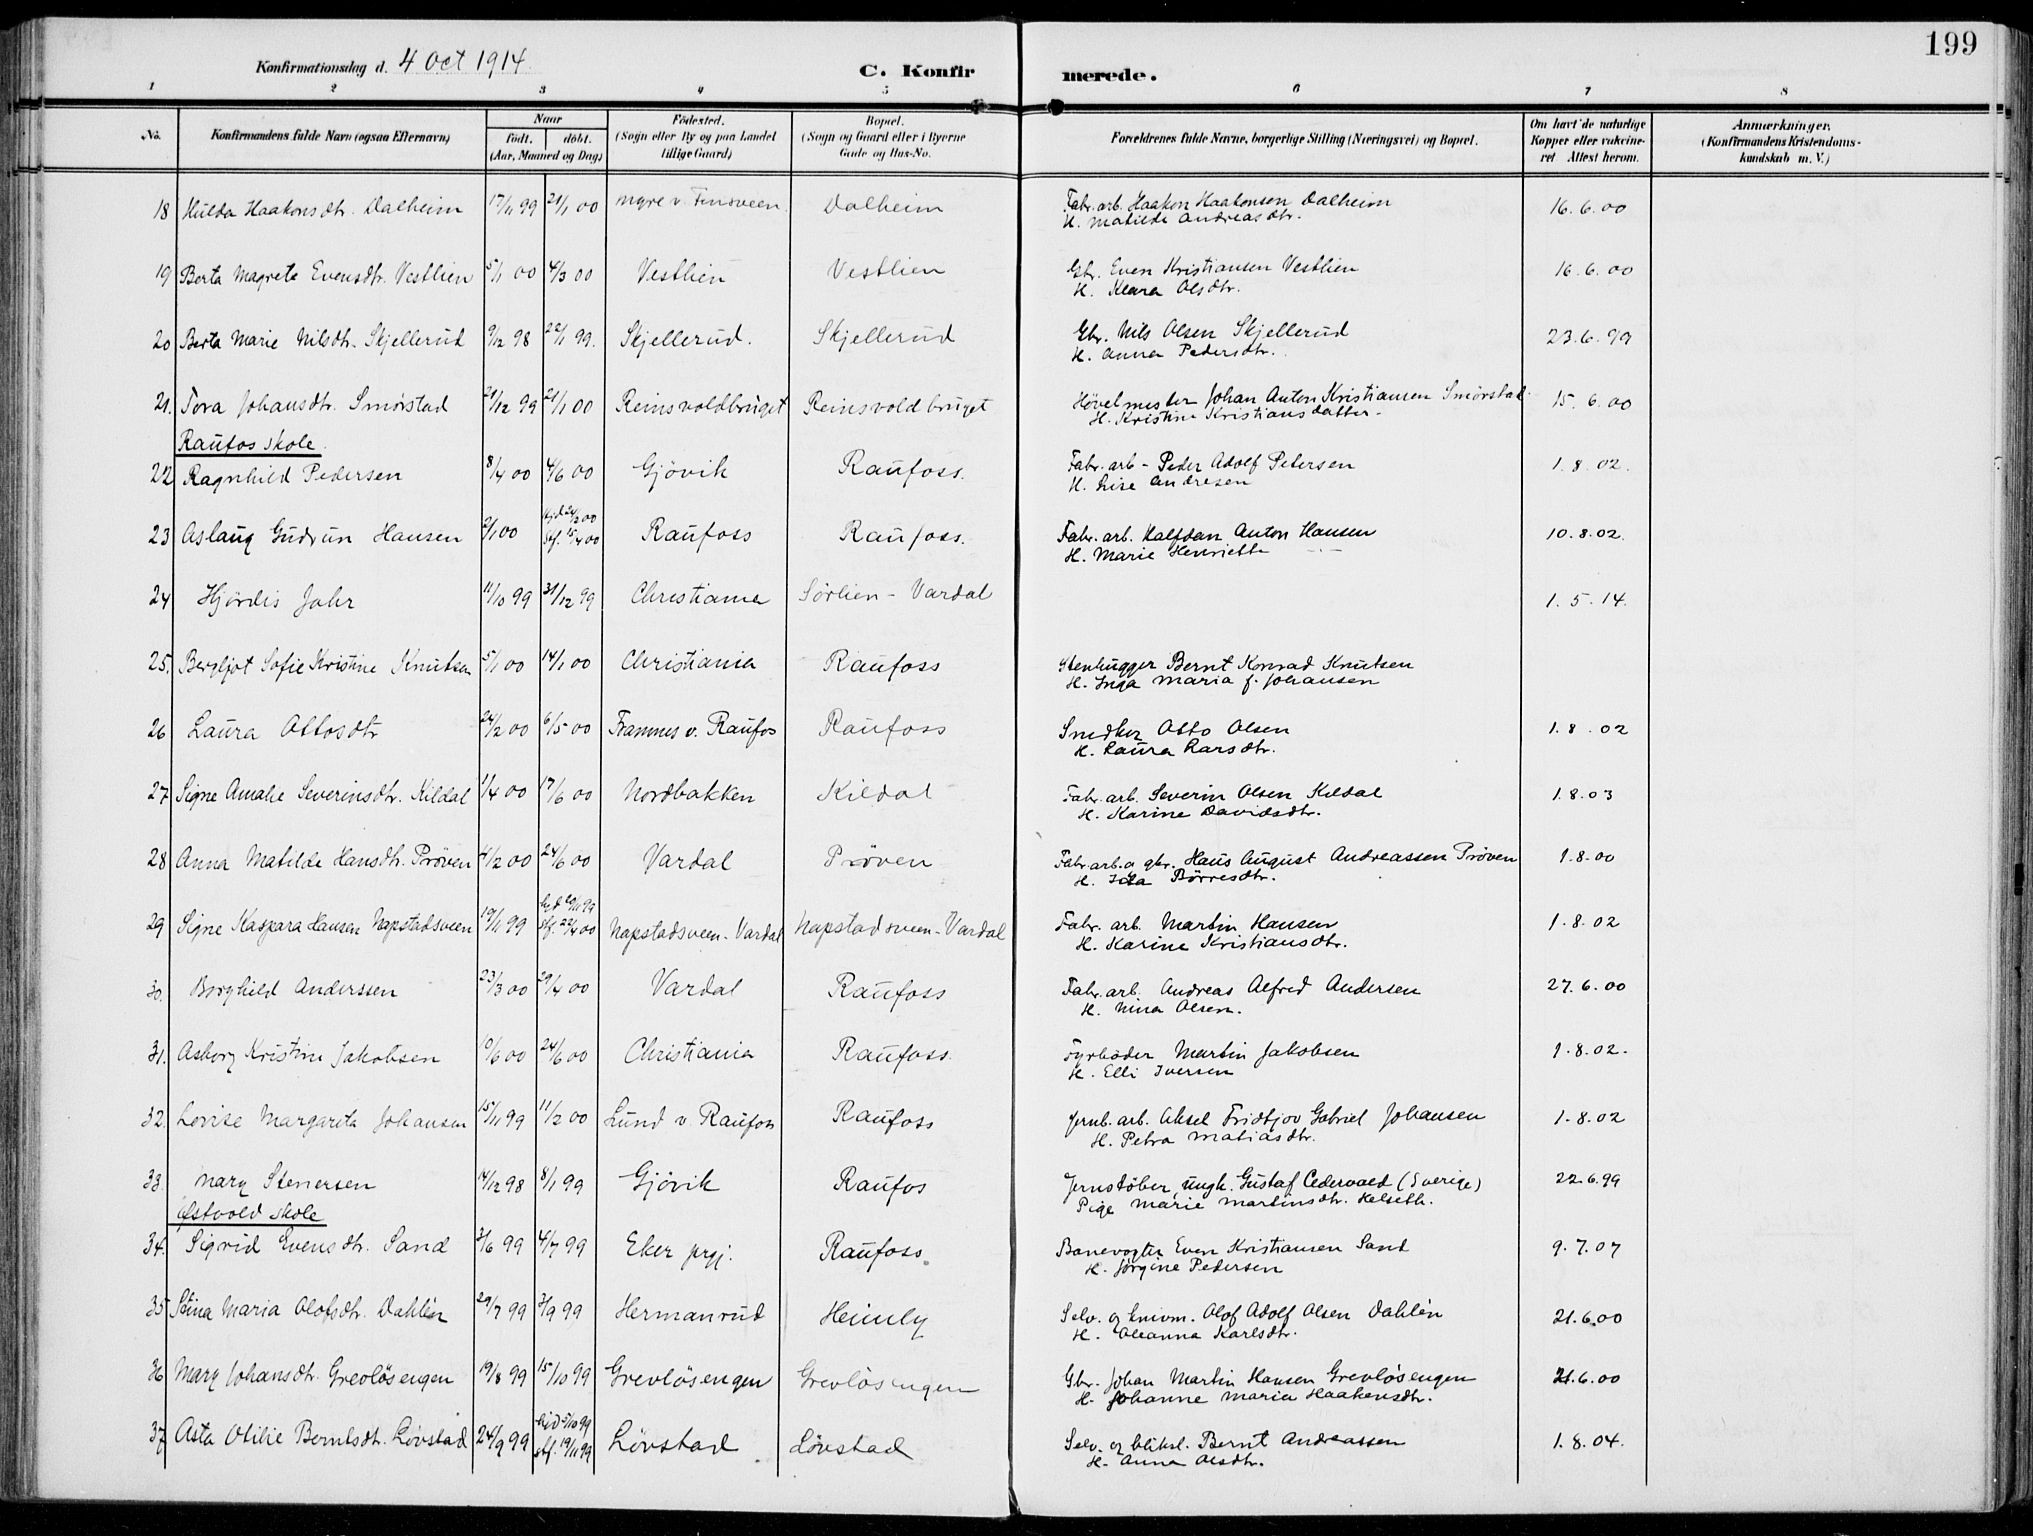 199
Konfirmationsdag d. 4 Oct 1914.
C. Konfirmerede.
1 2 3 4 5 6 7 8
No. Konfirmandens fulde Navn (ogsaa Efternavn) Naar født. døbt. (Aar, Maaned og Dag) Fødested. (Sogn eller By og paa Landet tillige Gaard) Bopæl. (Sogn og Gaard eller i Byerne Gade og Hus-No. Forældrenes fulde Navne, borgerlige Stilling (Næringsvei) og Bopæl. Om havt de naturlige Kopper eller vakcineret Attest herom. Anmærkninger. (Konfirmandens Kristendomskundskab m. V.)
18 Hulda Haakonsdtr. Dalheim 17/11 99 21/1 00 Myre v. Finsveen Dalheim Fabr. arb. Haakon Haakonsen Dalheim 16.6.00
H. Matilde Andreasdtr.
19 Berta Magrete Evensdtr. Vestlien 5/1 00 4/3 00 Vestlien Vestlien Gbr. Even Kristiansen Vestlien 16.6.00
H. Klara Olsdtr.
20 Berta Marie Nilsdtr. Skjellerud 9/12 98 22/1 99. Skjellerud. Skjellerud Gbr. Nils Olsen Skjellerud 23.6.99
H. Anna Pedersdtr.
21. Tora Johansdtr. Smørstad 21/12 99 21/1 00 Reinsvoldbruget Reinsvoldbruget Høvelmester Johan Anton Kristiansen Smørstad 15.6.00
H. Kristine Kristiansdatter.
Raufos skole.
22 Ragnhild Pedersen 8/4 00 4/6 00 Gjøvik Raufoss. Fabr. arb - Peder Adolf Petersen 1.8.02.
H. Lise Andresen
23 Aslaug Gudrun Hansen 2/1 00 Hjd 24/2 00 Stf. 15/4 00 Raufoss Raufoss. Fabr. arb. Halfdan Anton Hansen 10.8.02.
H. Marie Henriette
24 Hjørdis Jahr 11/10 99 31/12 99 Christiania Sørlien - Vardal 1.5.14.
25. Bergljot Sofie Kristine Knutsen 5/1 00 14/1 00 Christiania Raufoss Stenhugger Bernt Konrad Knutsen
H. Inga Maria f. Johansen
26 Laura Ottosdtr 24/2 00 6/5 00 Framnes v. Raufos Raufoss Snedker Otto Olsen 1.8.02
H. Laura Larsdtr.
27 Signe Amalie Severinsdtr. Kildal 1/4 00 17/6 00 Nordbakken Kildal Fabr. arb. Severin Olsen Kildal 1.8.03
H. Karine Davidsdtr.
28 Anna Matilde Hansdtr. Prøven 4/2 00 24/6 00 Vardal Prøven Fabr. arb. o gbr. Hans August Andreassen Prøven 1.8.00
H. Ida Børresdtr.
29 Signe Kaspara Hansen Napstadsveen 19/11 99 Stf. 22/4 00 Napstadsveen - Vardal Napstadsveen - Vardal Fabr. arb. Martin Hansen 1.8.02
H. Karine Kristiansdtr.
30. Borghild Anderssen 23/3 00 29/4 00 Vardal Raufoss Fabr. arb. Andreas Alfred Andersen 27.6.00
H. Nina Olsen.
31. Asborg Kristine Jakobsen 10/6 00 24/6 00 Christiania Raufoss. Fyrbøder Martin Jakobsen 1.8.02.
H. Elli Iversen
32. Lovise Margarita Johansen 15/11 99 11/2 00 Lund v. Raufoss Raufoss Jernb. arb. Aksel Fridtjov Gabriel Johansen 1.8.02
H. Petra Matiasdtr.
33. Mary Stenersen 14/12 98 8/1 99 Gjøvik Raufos Jernstøber, ungk. Gustaf Cedervald (Sverige) 22.6.99
Pige Marie Martinsdtr. Helseth.
Østvold skole
34. Sigrid Evensdtr. Sand 3/6 99 4/7 99 Eker prgj. Raufoss. Banevogter Even Kristiansen Sand 9.7.07
H. Jørgine Pedersen
35 Stina Maria Olofsdtr. Dahlén 29/7 99 3/9 99 Hermanrud Heimly Selv. og snivm. Olof Adolf Olsen Dahlén 21.6.00
H. Oleanna Karlsdtr.
36 Mary Johansdtr. Grevløsengen 19/8 99 15/10 99 Grevløsengen Grevløsengen Gbr. Johan Martin Hansen Grevløsengen 21.6.00
H. Johanne Maria Haakensdtr.
37 Asta Otilie Berntsdtr. Løvstad 24/9 99 hjd 5/10 99 stf. 19/11 99 Løvstad Løvstad Selv. og bliksl. Bernt Andreassen 1.8.04.
H. Anna Olsdtr.